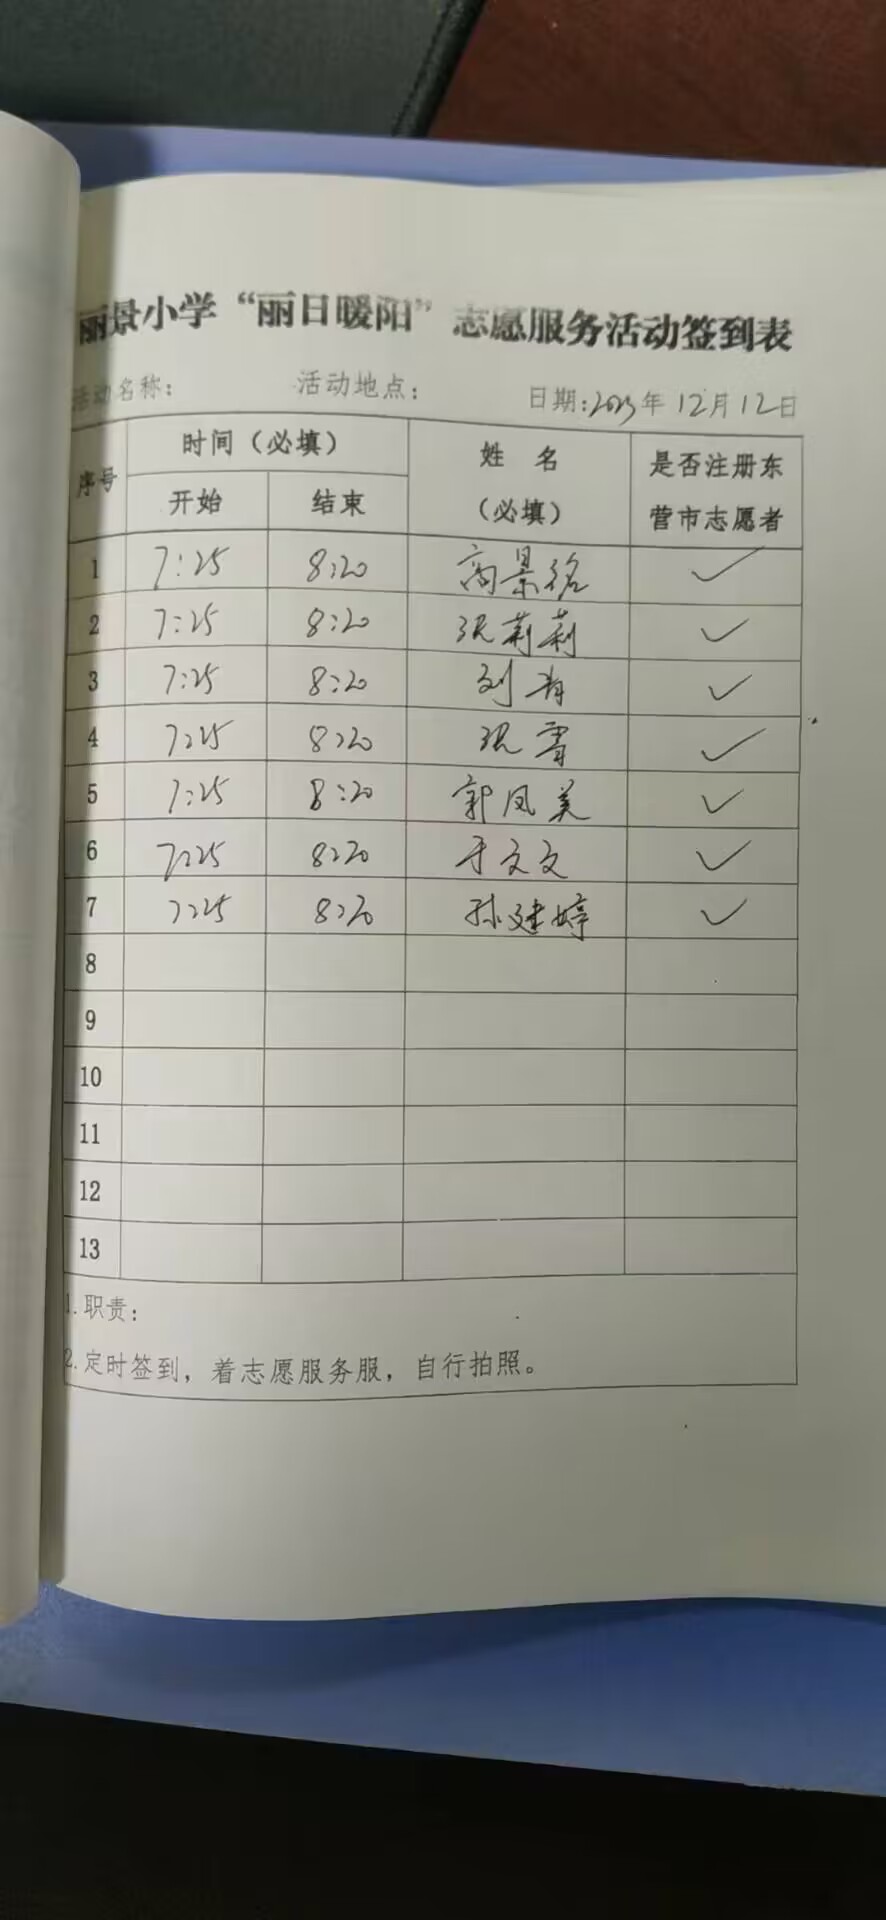 丽景小学“丽日暖阳”志愿服务活动签到表
活动名称： 活动地点： 日期：2023年12月12日
序号 时间（必填） 姓名（必填） 是否注册东营市志愿者
开始 结束
1 7:25 8:20 高景铭 ✓
2 7:25 8:20 张莉莉 ✓
3 7:25 8:20 刘青 ✓
4 7:25 8:20 张雪 ✓
5 7:25 8:20 郭凤美 ✓
6 7:25 8:20 于文文 ✓
7 7:25 8:20 孙建婷 ✓
8
9
10
11
12
13
1.职责：
2.定时签到，着志愿服务服，自行拍照。